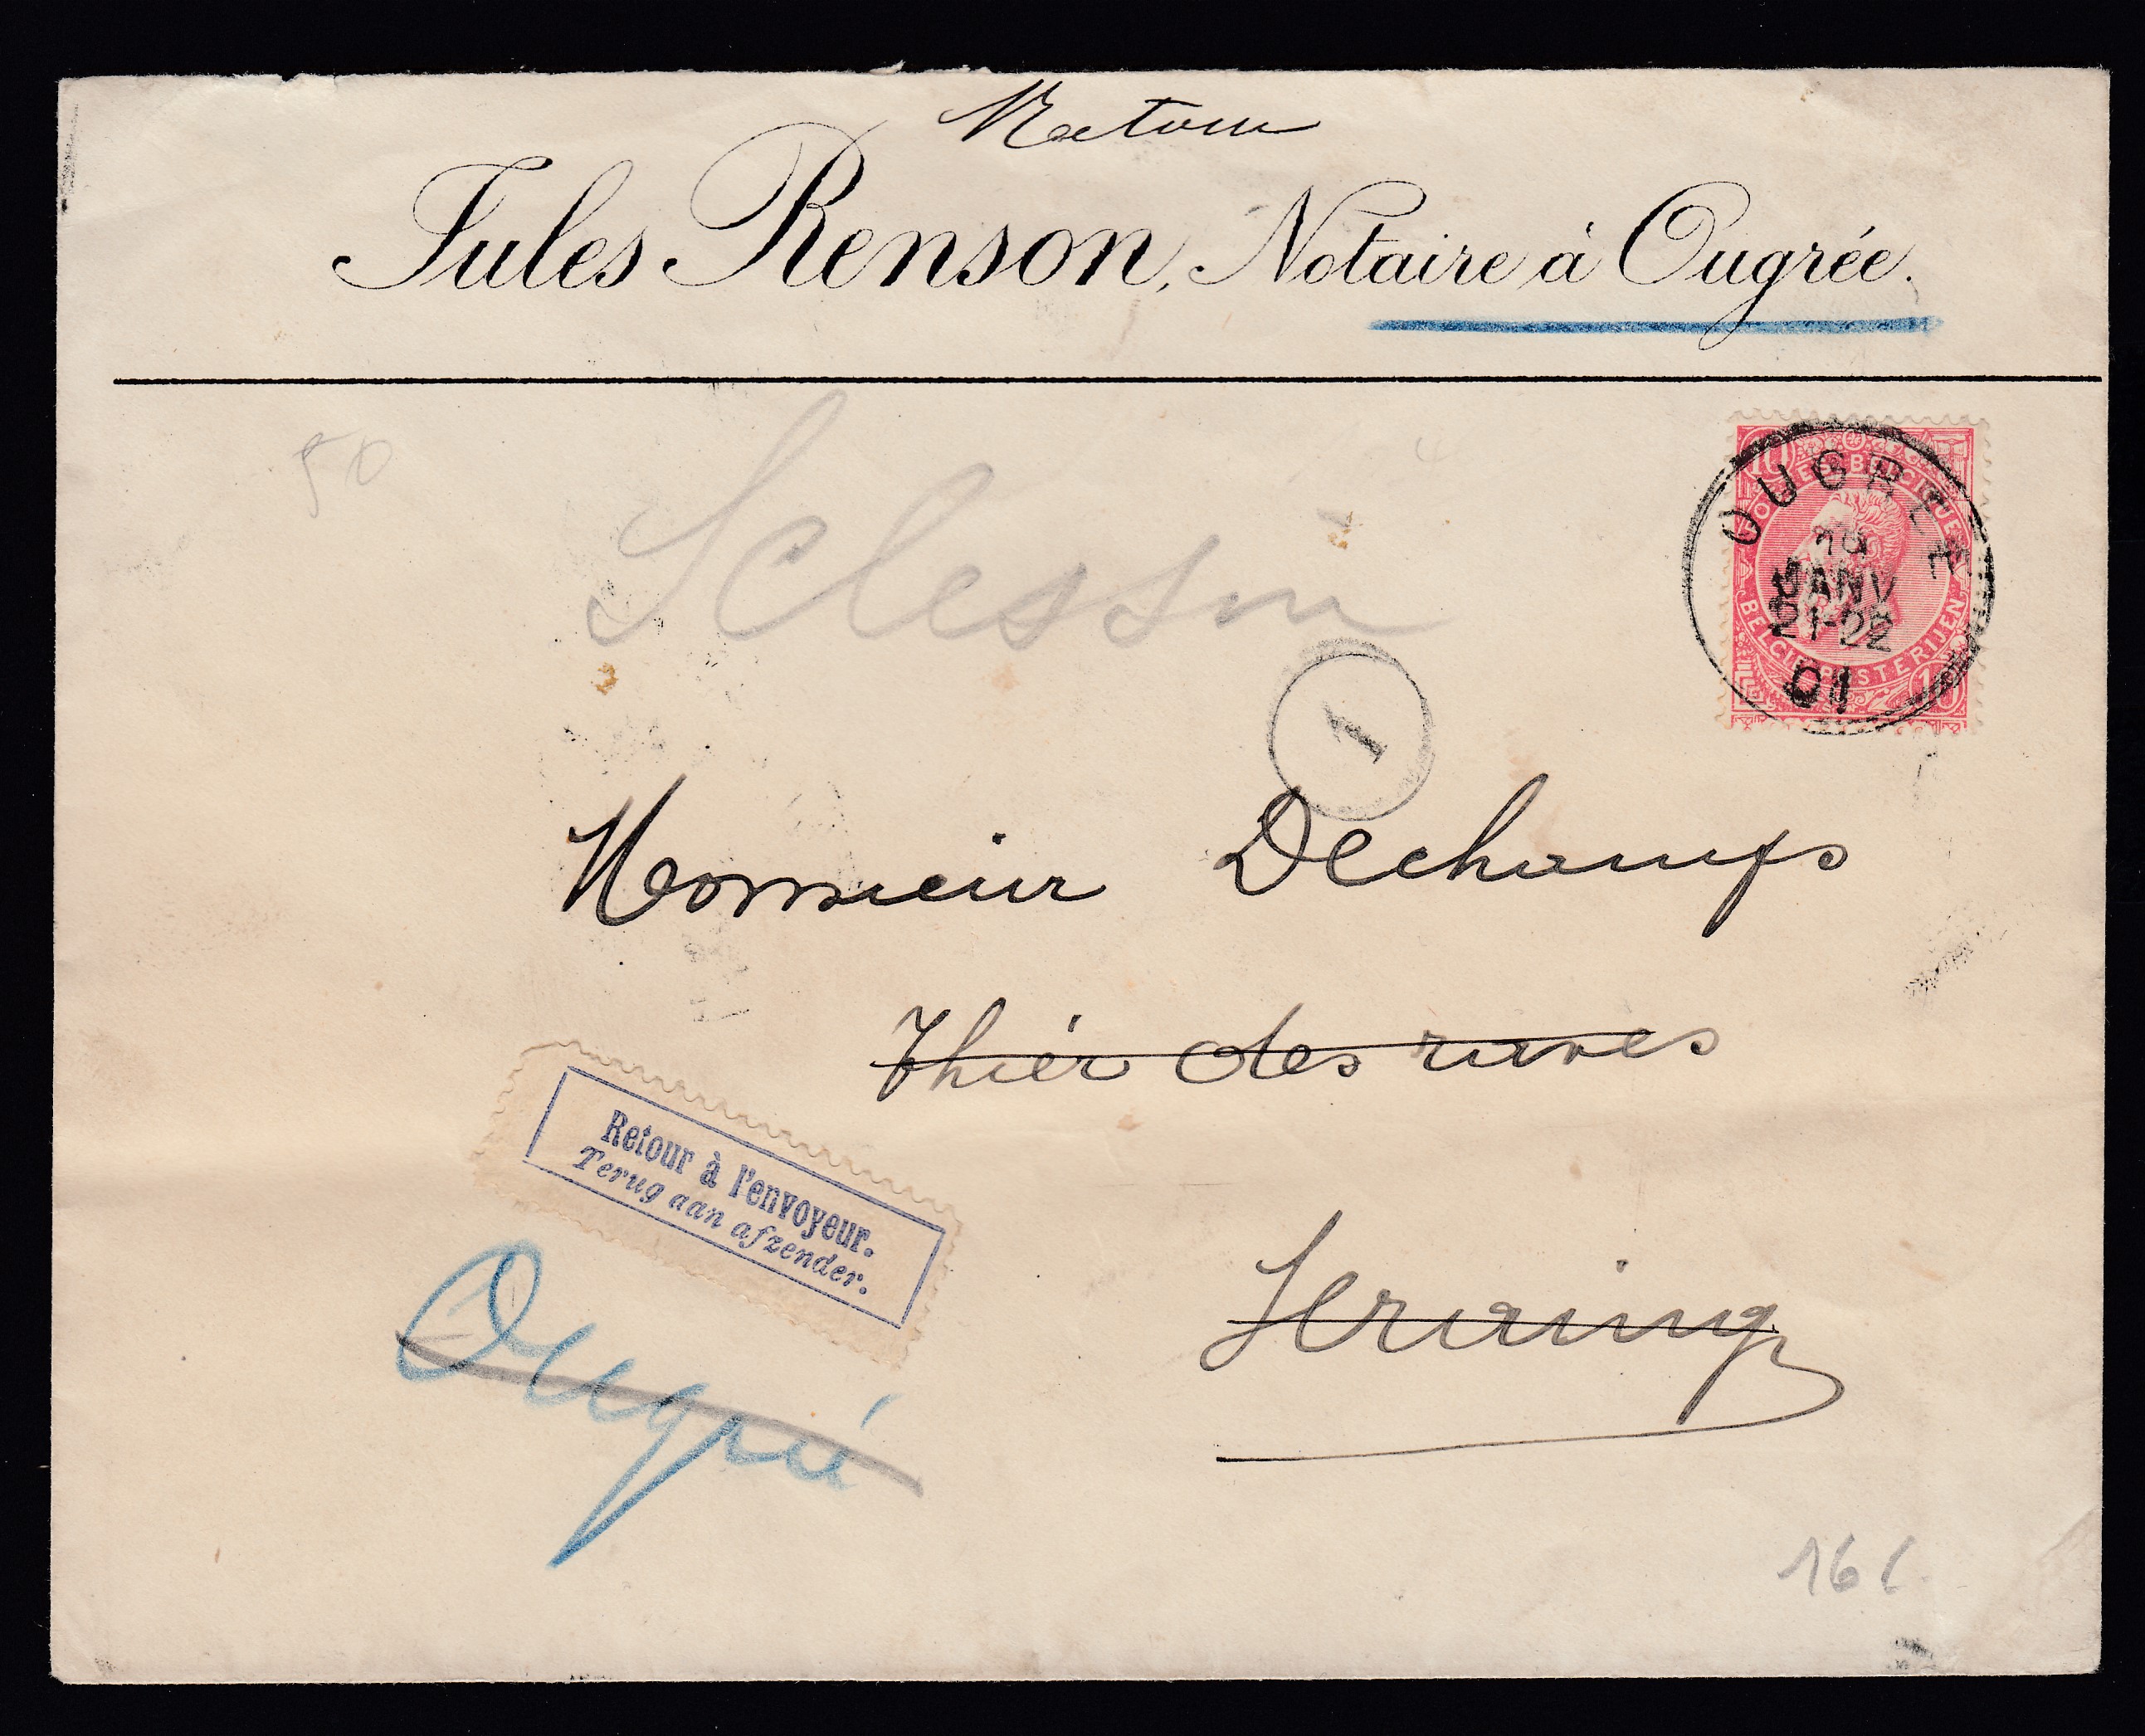 Retour
Jules Renson, Notaire à Ougrée.
50
Sclessin
10 10
POSTES BELGIQUE
BELGIE POSTERIJEN
OUGREE
JANV
21-22
01
1
Monsieur Dechamps
Thier des rares
Retour à l'envoyeur.
Terug aan afzender.
Seraing
Ougrée